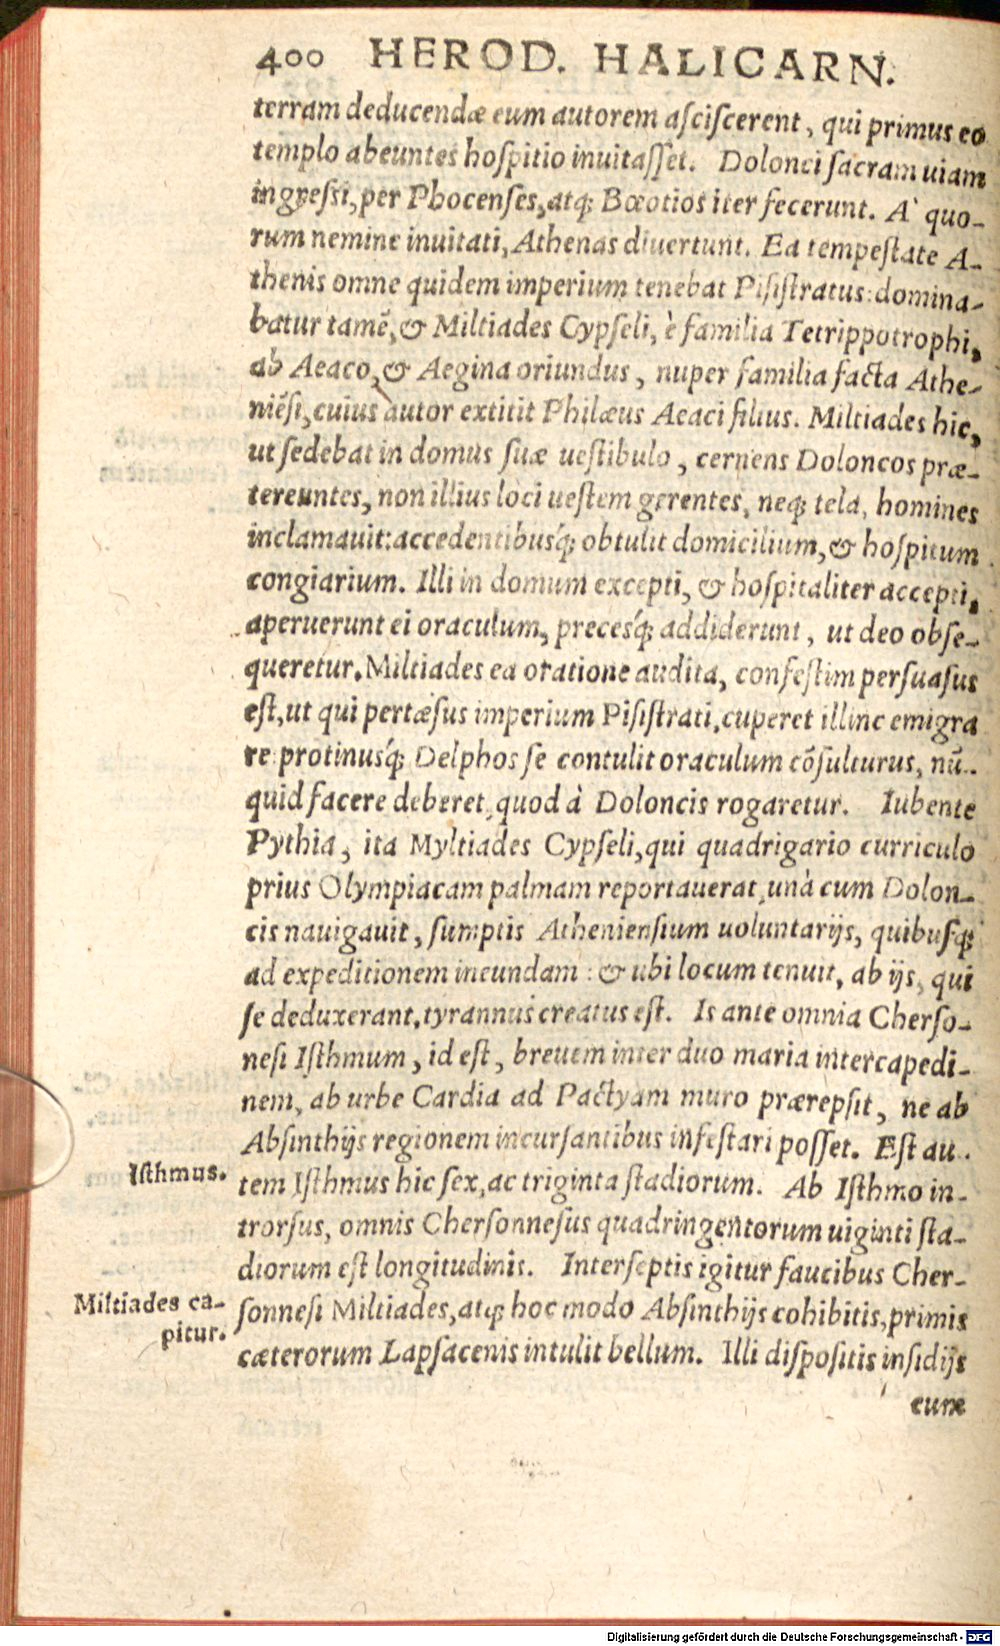 400 HEROD. HALICARN.
terram deducendæ eum autorem aſciſcerent, qui primus eo
templo abeuntes hoſpitio inuitaſſet. Dolonci ſacram uiam
ingreſsi, per Phocenſes, atq; Bœotios iter fecerunt. A` quo-
rum nemine inuitati, Athenas diuertunt. Ea tempeſtate A-
thenis omne quidem imperium tenebat Piſiſtratus: domina-
batur tamẽ, & Miltiades Cypſeli, è familia Tetrippotrophi,
ab Aeaco, & Aegina oriundus, nuper familia facta Athe-
niẽſi, cuius autor extitit Philæus Aeaci filius. Miltiades hic,
ut ſedebat in domus ſuæ ueſtibulo, cernens Doloncos præ-
tereuntes, non illius loci ueſtem gerentes, neq; tela, homines
inclamauit: accedentibusq́; obtulit domicilium, & hoſpitum
congiarium. Illi in domum excepti, & hoſpitaliter accepti,
aperuerunt ei oraculum, precesq́; addiderunt, ut deo obſe-
queretur. Miltiades ea oratione audita, confeſtim perſuaſus
eſt, ut qui pertæſus imperium Piſiſtrati, cuperet illinc emigra
re protinusq́; Delphos ſe contulit oraculum cõſulturus, nũ-
quid facere deberet, quod à Doloncis rogaretur. Iubente
Pythia, ita Myltiades Cypſeli, qui quadrigario curriculo
prius Olympiacam palmam reportauerat, unà cum Dolon-
cis nauigauit, ſumptis Athenienſium uoluntarijs, quibuſq;
ad expeditionem ineundam: & ubi locum tenuit, ab ijs, qui
ſe deduxerant, tyrannus creatus eſt. Is ante omnia Cherſo-
neſi Iſthmum, id eſt, breuem inter duo maria intercapedi-
nem, ab urbe Cardia ad Pactyam muro prærepſit, ne ab
Abſinthijs regionem incurſantibus infeſtari poſſet. Eſt au-
Iſthmus.
tem Iſthmus hic ſex, ac triginta ſtadiorum. Ab Iſthmo in-
trorſus, omnis Cherſonneſus quadringentorum uiginti ſta-
diorum eſt longitudinis. Interſeptis igitur faucibus Cher-
Miltiades ca-
pitur.
ſonneſi Miltiades, atq; hoc modo Abſinthijs cohibitis, primis
cæterorum Lapſacenis intulit bellum. Illi diſpoſitis inſidijs
eum
Digitalisierung gefördert durch die Deutsche Forschungsgemeinschaft - DFG